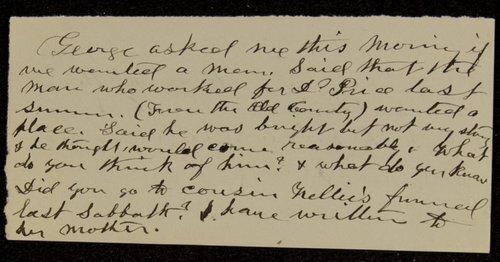 George asked me this Morning if
we wanted a man. Said that the
man who worked for Dr Price last
summer. (From the Old County) wanted a
place. Said he was bright but not very strong
& he thought would come reasonable. & What
do you think of him? & what do you know
Did you go to cousin Nellie's funeral
last Sabbath? I have written to
her mother.